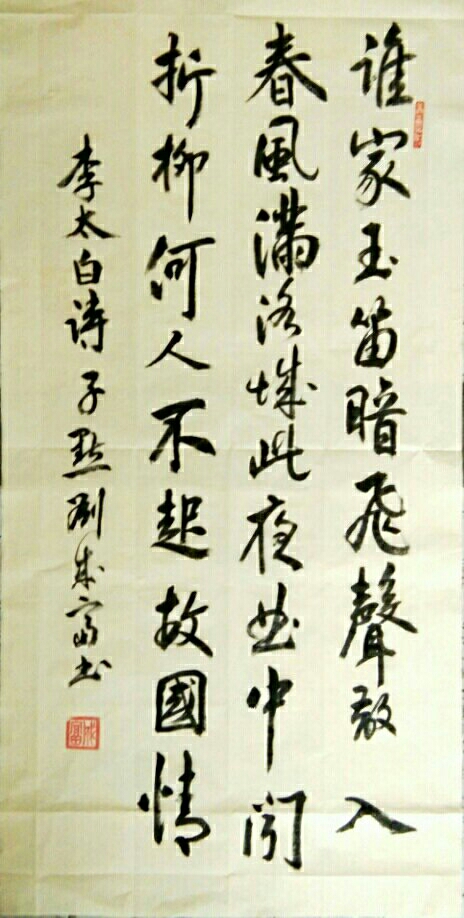 誰家玉笛暗飛聲散入
春風滿洛城此夜曲中聞
折柳何人不起故國情
李太白詩子默劉成富書